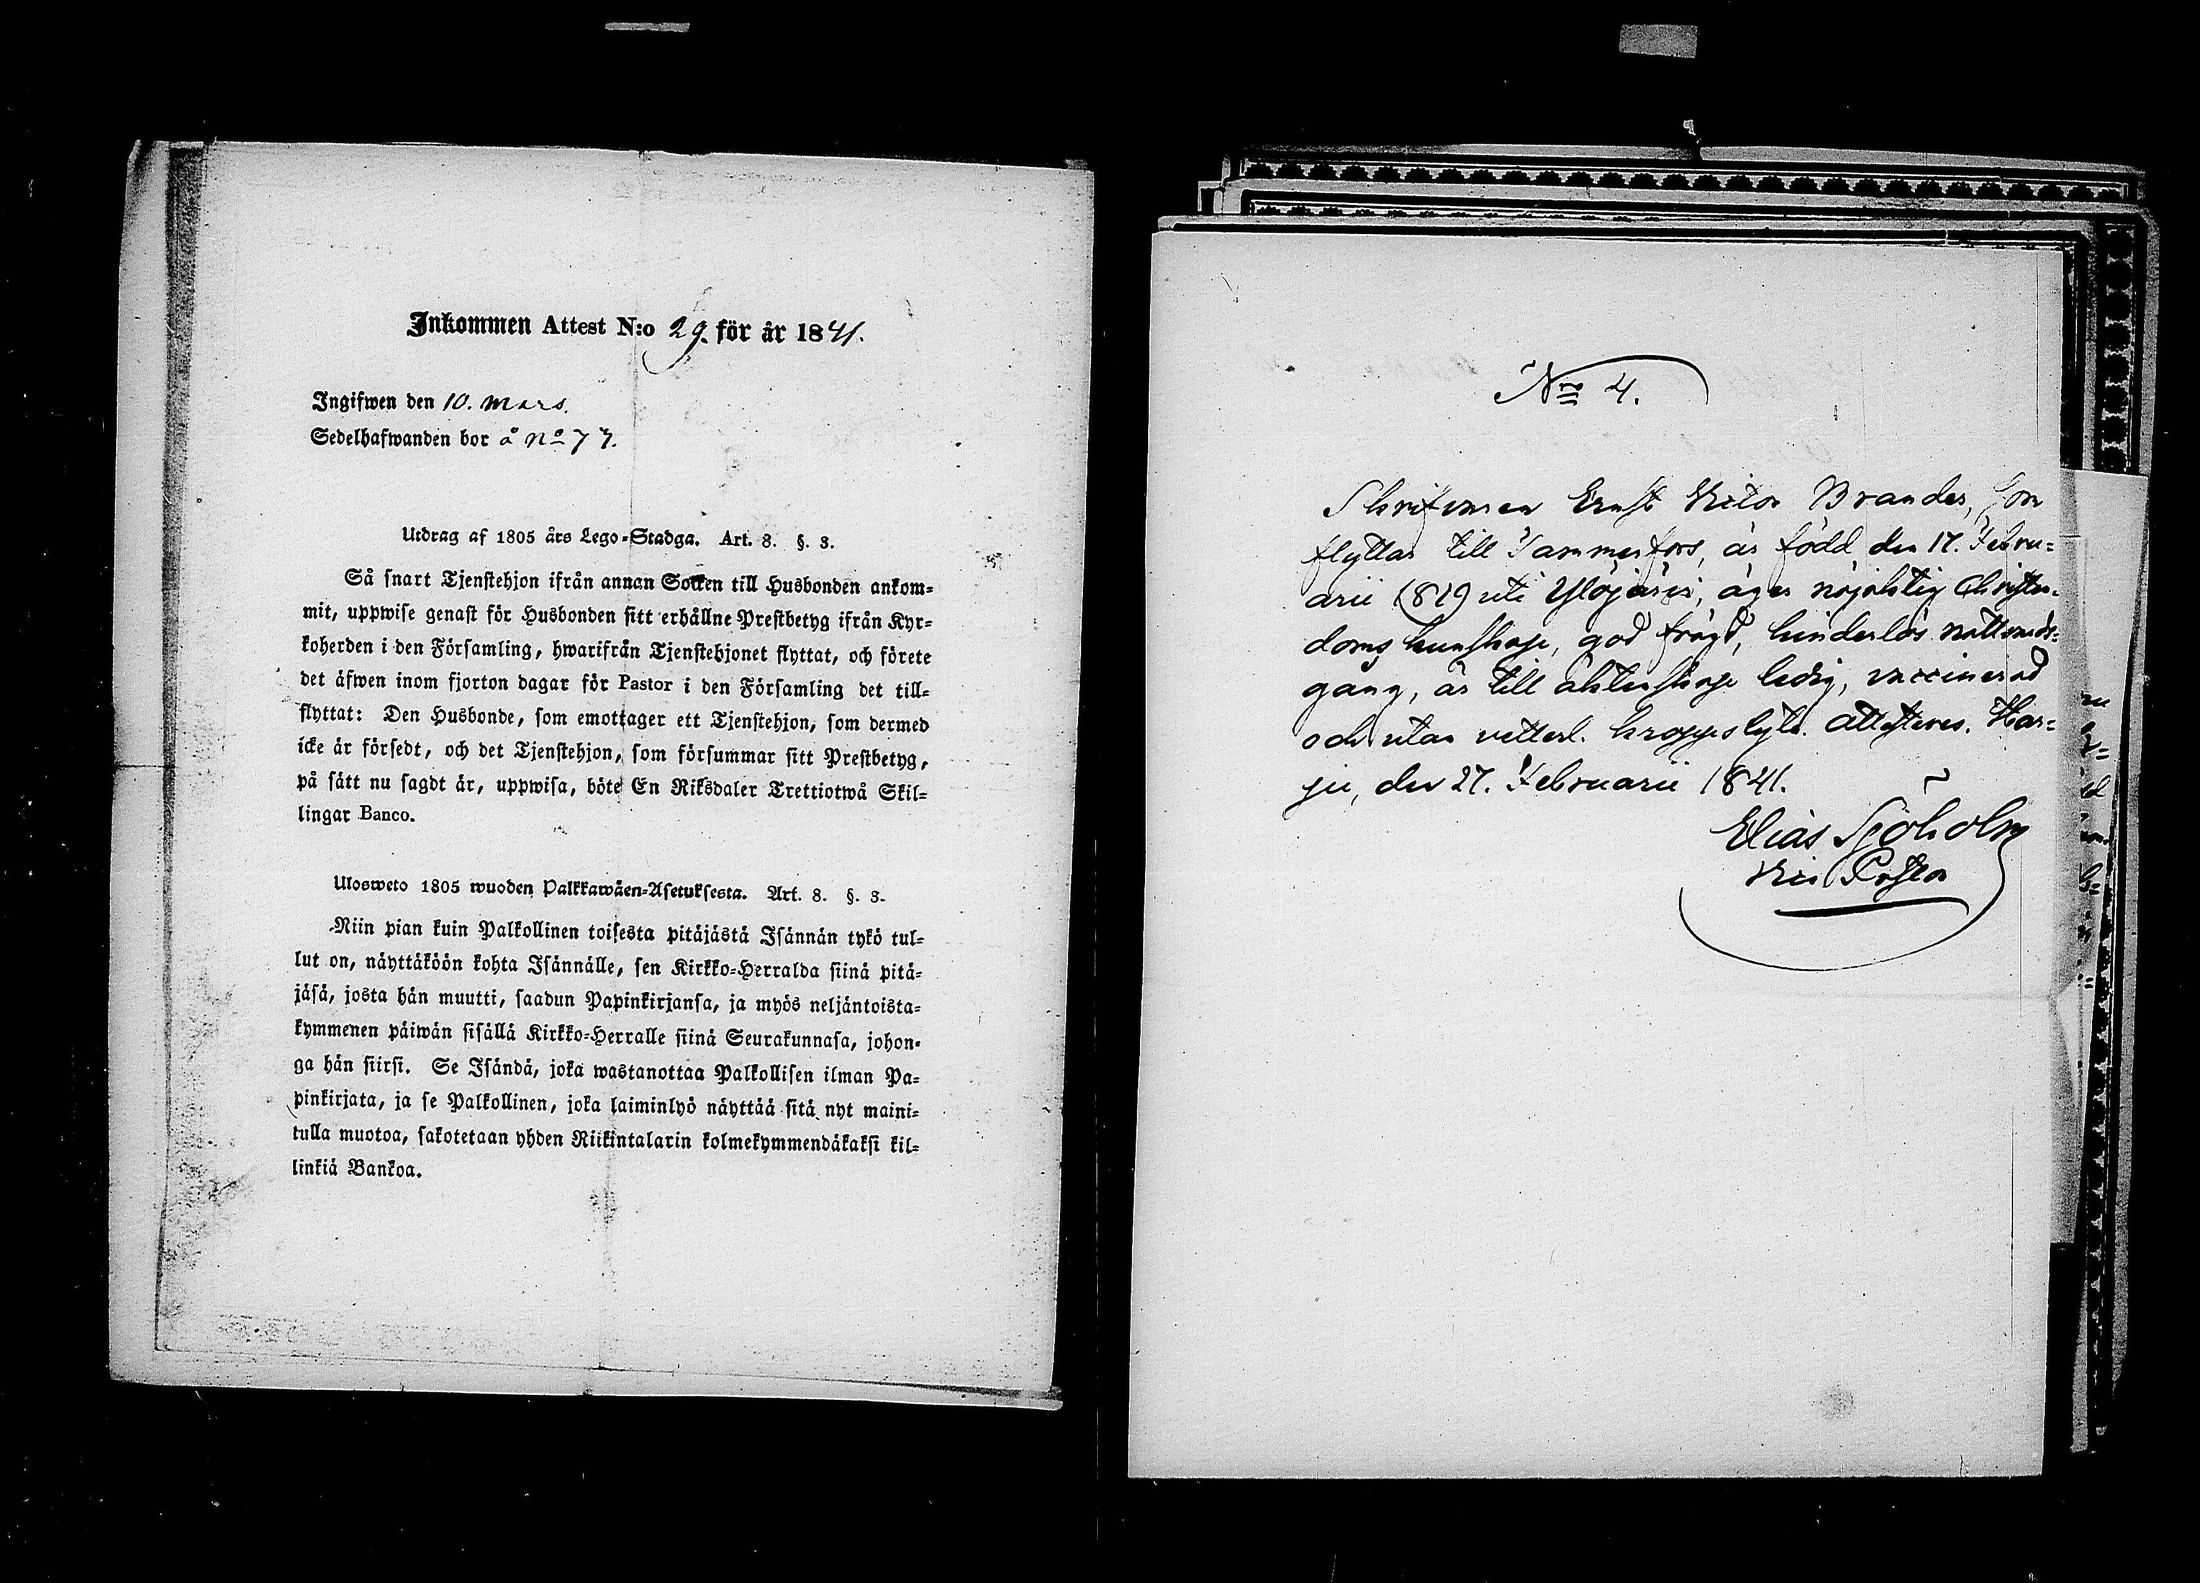 Inkommen Attest N:o 29. för år 1841.
Ingifwen den 10. Mars.
Sedelhafwanden bor å No 77.
Utdrag af 1805 års Lego-Stadga. Art. 8. §. 3.
Så snart Tjenstehjon ifrån annan Socken till Husbonden ankom-
mit, uppwise genast för Husbonden sitt erhållne Prestbetyg ifrån Kyr-
koherden i den Församling, hwarifrån Tjenstehjonet flyttat, och förete
det äfwen inom fjorton dagar för Pastor i den Församling det till-
flyttat: Den Husbonde, som emottager ett Tjenstehjon, som dermed
icke är försedt, och det Tjenstehjon, som försummar sitt Prestbetyg,
på sätt nu sagdt är, uppwisa, böte En Riksdaler Trettiotwå Skil-
lingar Banco.
Ulosweto 1805 wuoden Palkkawäen-Asetuksesta. Art. 8. §. 3.
Niin pian kuin Palkollinen toisesta pitäjästä Isännän tykö tul-
lut on, näyttäköön kohta Isännälle, sen Kirkko-Herralda siinä pitä-
jäsä, josta hän muutti, saadun Papinkirjansa, ja myös neljäntoista-
kymmenen päiwän sisällä Kirkko-Herralle siinä Seurakunnasa, johon-
ga hän siirsi. Se Isändä, joka wastanottaa Palkollisen ilman Pa-
pinkirjata, ja se Palkollinen, joka laiminlyö näyttää sitä nyt maini-
tulla muotoa, sakotetaan yhden Riikintalarin kolmekymmendäkaksi kil-
linkiä Bankoa.
Nro 4.
Skrifvaren Ernst Victor Brander, som
flyttar till Tammerfors, är född den 17. Febru-
arii 1819 uti Ylöjärvi, äger nöjaktig Christen-
doms kunskap, god frägd, hinderlös nattvards-
gång, är till äktenskap ledig, vaccinerad
och utan vetterl. kroppslyte. Attesteres. Har-
ju, den 27. Februarii 1841.
Elias Sjöholm
Vice Pastor